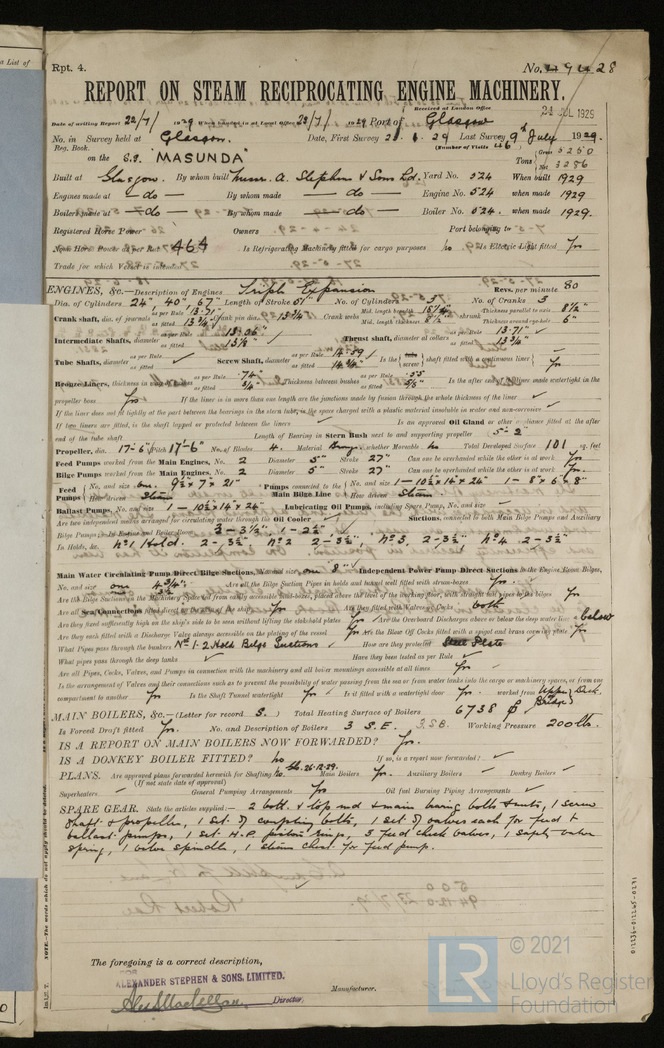 a List of
Rpt. 4.
No. 49428
REPORT ON STEAM RECIPROCATING ENGINE MACHINERY.
Received at London Office
24 JUL 1929
Date of writing Report 22/7/ 1929 When handed in at Local Office 23/7/ 1929 Port of Glasgow
No. in Survey held at Glasgow. Date, First Survey 6. 29 Last Survey 9th July 1929.
Reg. Book. (Number of Visits 46)
on the S.S. "MASUNDA" Tons Gross 5250 Net 3256
Built at Glasgow. By whom built Messrs. A. Stephen & Sons Ld. Yard No. 524 When built 1929
Engines made at — do — By whom made — do — Engine No. 524 when made 1929
Boilers made at — do — By whom made — do — Boiler No. 524. when made 1929.
Registered Horse Power Owners Port belonging to
Nom. Horse Power as per Rule 464 Is Refrigerating Machinery fitted for cargo purposes no Is Electric Light fitted Yes
Trade for which Vessel is intended
ENGINES, &c.—Description of Engines Triple Expansion Revs. per minute 80
Dia. of Cylinders 24" 40" 67" Length of Stroke 51" No. of Cylinders 3 No. of Cranks 3
Crank shaft, dia. of journals as per Rule 13.71" as fitted 13¾" Crank pin dia. 13¾" Crank webs Mid. length breadth Mid. length thickness shrunk Thickness parallel to axis 8½" Thickness around eye-hole 6"
Intermediate Shafts, diameter as per Rule 13.06" as fitted Thrust shaft, diameter at collars as per Rule 13.71" as fitted 13¾"
Tube Shafts, diameter as per Rule as fitted Screw Shaft, diameter as per Rule 14.59 as fitted 14¾" Is the screw shaft fitted with a continuous liner Yes
Bronze Liners, thickness in way of bushes as per Rule .74" as fitted ¾" Thickness between bushes as per Rule .55 as fitted Is the after end of the liner made watertight in the
propeller boss Yes If the liner is in more than one length are the junctions made by fusion through the whole thickness of the liner
If the liner does not fit tightly at the part between the bearings in the stern tube, is the space charged with a plastic material insoluble in water and non-corrosive
If two liners are fitted, is the shaft lapped or protected between the liners Is an approved Oil Gland or other appliance fitted at the after
end of the tube shaft Length of Bearing in Stern Bush next to and supporting propeller 5-2
Propeller, dia. 17-6" Pitch 17-6" No. of Blades 4. Material Bronze whether Moveable no Total Developed Surface 101 sq. feet
Feed Pumps worked from the Main Engines, No. 2 Diameter 5" Stroke 27" Can one be overhauled while the other is at work Yes.
Bilge Pumps worked from the Main Engines, No. 2 Diameter 5" Stroke 27" Can one be overhauled while the other is at work Yes.
Feed Pumps No. and size one. 9½ x 7 x 21" How driven Steam Pumps connected to the Main Bilge Line No. and size 1 — 10½ x 14 x 24" 1 — 8 x 6 x 8" How driven Steam.
Ballast Pumps, No. and size 1 — 10½ x 14 x 24" Lubricating Oil Pumps, including Spare Pump, No. and size
Are two independent means arranged for circulating water through the Oil Cooler Suctions, connected to both Main Bilge Pumps and Auxiliary
Bilge Pumps;—In Engine and Boiler Room 3 — 3½" 1 — 2½"
In Holds, &c. No 1 Hold. 2 — 3½" No 2 2 — 3½", No 3, 2 — 3½" No 4. 2 — 3½"
Main Water Circulating Pump Direct Bilge Suctions, No. and size one 8" Independent Power Pump Direct Suctions to the Engine Room Bilges,
No. and size one Are all the Bilge Suction Pipes in holds and tunnel well fitted with strum-boxes Yes.
Are the Bilge Suctions in the Machinery Space led from easily accessible mud-boxes, placed above the level of the working floor, with straight tail pipes to the bilges Yes
Are all Sea Connections fitted direct on the skin of the ship Yes Are they fitted with Valves or Cocks both
Are they fixed sufficiently high on the ship's side to be seen without lifting the stokehold plates Yes Are the Overboard Discharges above or below the deep water line below
Are they each fitted with a Discharge Valve always accessible on the plating of the vessel Yes Are the Blow Off Cocks fitted with a spigot and brass covering plate Yes
What Pipes pass through the bunkers No 1-2 Hold Bilge Suctions How are they protected Steel Plate
What pipes pass through the deep tanks Have they been tested as per Rule
Are all Pipes, Cocks, Valves, and Pumps in connection with the machinery and all boiler mountings accessible at all times Yes
Is the arrangement of Valves and their connections such as to prevent the possibility of water passing from the sea or from water tanks into the cargo or machinery spaces, or from one
compartment to another Yes Is the Shaft Tunnel watertight Yes Is it fitted with a watertight door Yes worked from Upper Deck. Bridge
MAIN BOILERS, &c.—(Letter for record S.) Total Heating Surface of Boilers 6738
Is Forced Draft fitted Yes. No. and Description of Boilers 3 S.E. 3.S.B. Working Pressure 200 lb.
IS A REPORT ON MAIN BOILERS NOW FORWARDED? Yes.
IS A DONKEY BOILER FITTED? no If so, is a report now forwarded?
PLANS. Are approved plans forwarded herewith for Shafting 26.12.29. Main Boilers Yes. Auxiliary Boilers Donkey Boilers
(If not state date of approval)
Superheaters General Pumping Arrangements Yes Oil fuel Burning Piping Arrangements
SPARE GEAR. State the articles supplied:— 2 bolts & top end & main bearing bolts & nuts, 1 screw
shaft & propeller, 1 set of coupling bolts, 1 set of valves each for feed &
ballast pumps, 1 set H.P. piston rings, 3 feed check valves, 1 safety valve
spring, 1 valve spindle, 1 steam chest for feed pump.
The foregoing is a correct description,
FOR
ALEXANDER STEPHEN & SONS, LIMITED.
Manufacturer.
Director.
NOTE.—The words which do not apply should be deleted.
012236-012265-0271
LR
© 2021
Lloyd's Register
Foundation